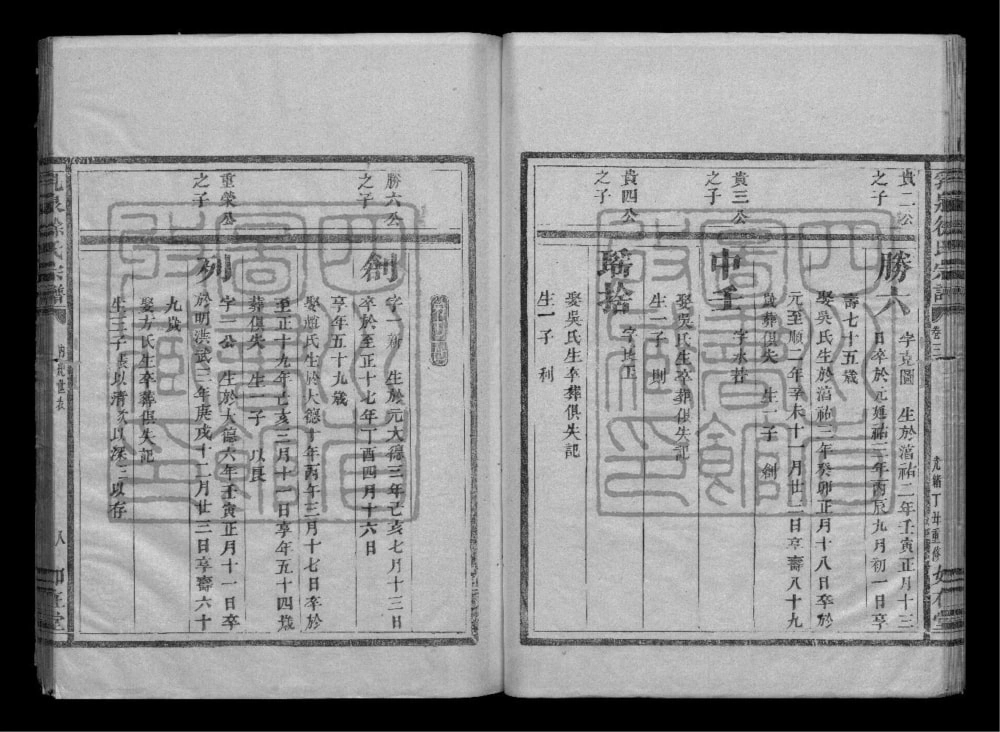 貴二公
之子
勝六
字克圖 生於淳祐二年壬寅正月十三
日卒於元延祐三年丙辰九月初一日享
壽七十五歲
娶吳氏生於淳祐三年癸卯正月十八日卒於
元至順二年辛未十一月廿二日享壽八十九
歲葬俱失 生一子 創
貴三公
之子
中壬
字水若
娶吳氏生卒葬俱失記
生一子 則
貴四公
之子
瑤捨
字
娶吳氏生卒葬俱失記
生一子 利
卷三
光緒丁丑重修
勝六公
之子
創
字一新 生於元大德三年己亥七月十三日
卒於至正十七年丁酉四月十六日
享年五十九歲
娶趙氏生於大德十年丙午三月十七日卒於
至正十九年己亥三月十一日享年五十四歲
葬俱失 生一子 以良
重榮公
之子
列
字二公 生於大德六年壬寅正月十一日卒
於明洪武三年庚戌十二月廿三日享壽六十
九歲
娶方氏生卒葬俱失記
生三子 長以清 次以深 三以存
徐氏宗譜
世表
八